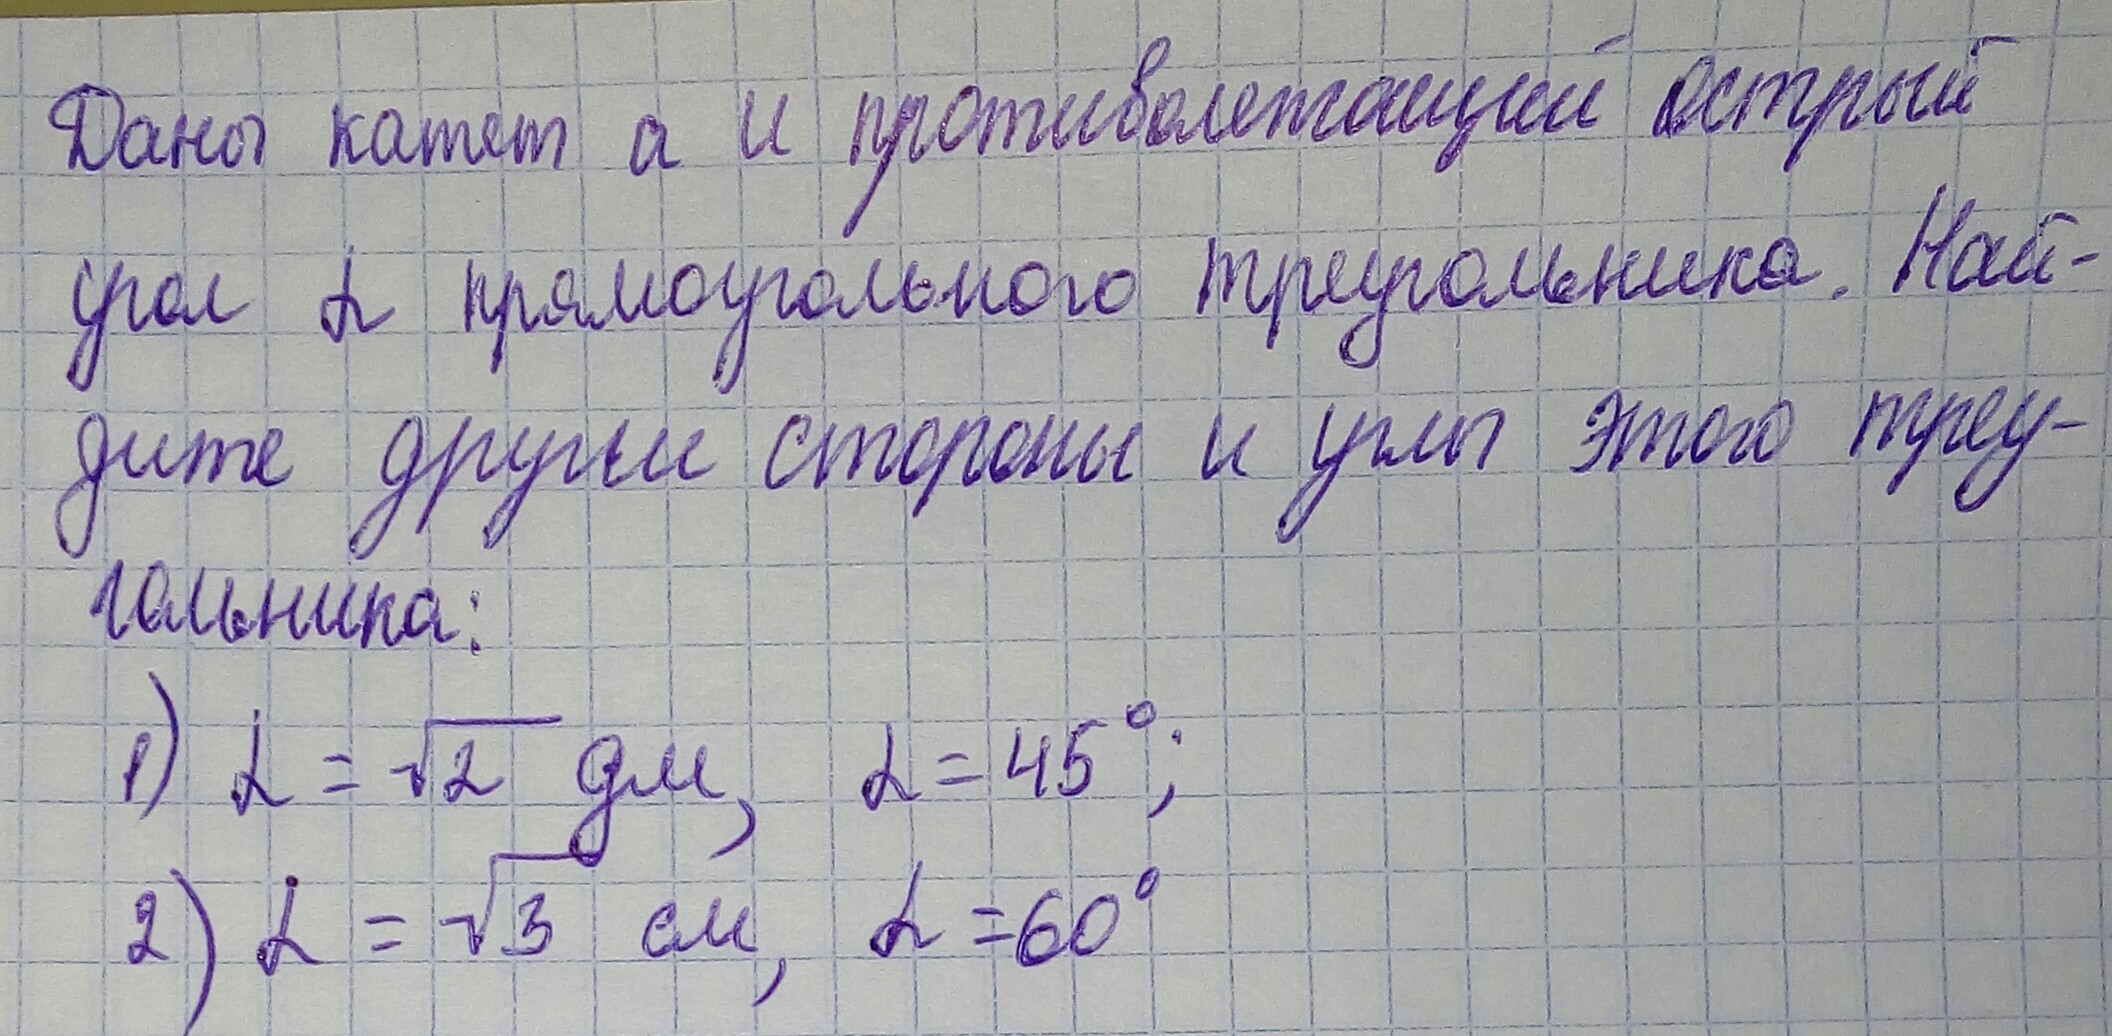 Даны катет а и противолежащий острый
угол α прямоугольного треугольника. Най-
дите другие стороны и углы этого треу-
гольника:
1) α = √2 дм, α = 45°;
2) α = √3 см, α = 60°